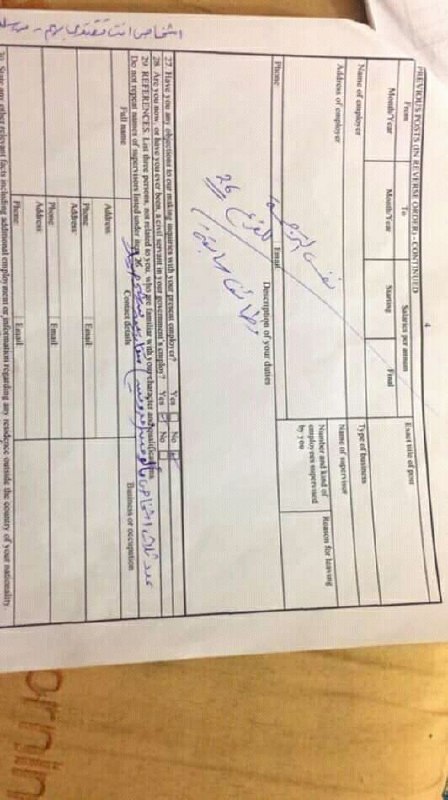 4
PREVIOUS POSTS (IN REVERSE ORDER) - CONTINUED
From
To
Salaries per annum
Exact title of post
Month/Year
Month/Year
Starting
Final
Name of employer
Type of business
Address of employer
Name of supervisor
Phone
Email
Number and kind of employees supervised by you
Reason for leaving
Description of your duties
نفس الترجمة
للنوع 26
وظائف سابقة
27 Have you any objections to our making inquiries with your present employer? Yes No
28 Are you now, or have you ever been, a civil servant in your government's employ? Yes No
29 REFERENCES: List three persons, not related to you, who are familiar with your character and qualifications.
Do not repeat names of supervisors listed under item 26
عدد ثلاث اشخاص
Full name
Contact details
Business or occupation
Address
Phone
Email:
Address
Phone
Email:
Address
Phone
Email:
30. State any other relevant facts including additional employment or information regarding any residence outside the country of your nationality
اشخاص انت